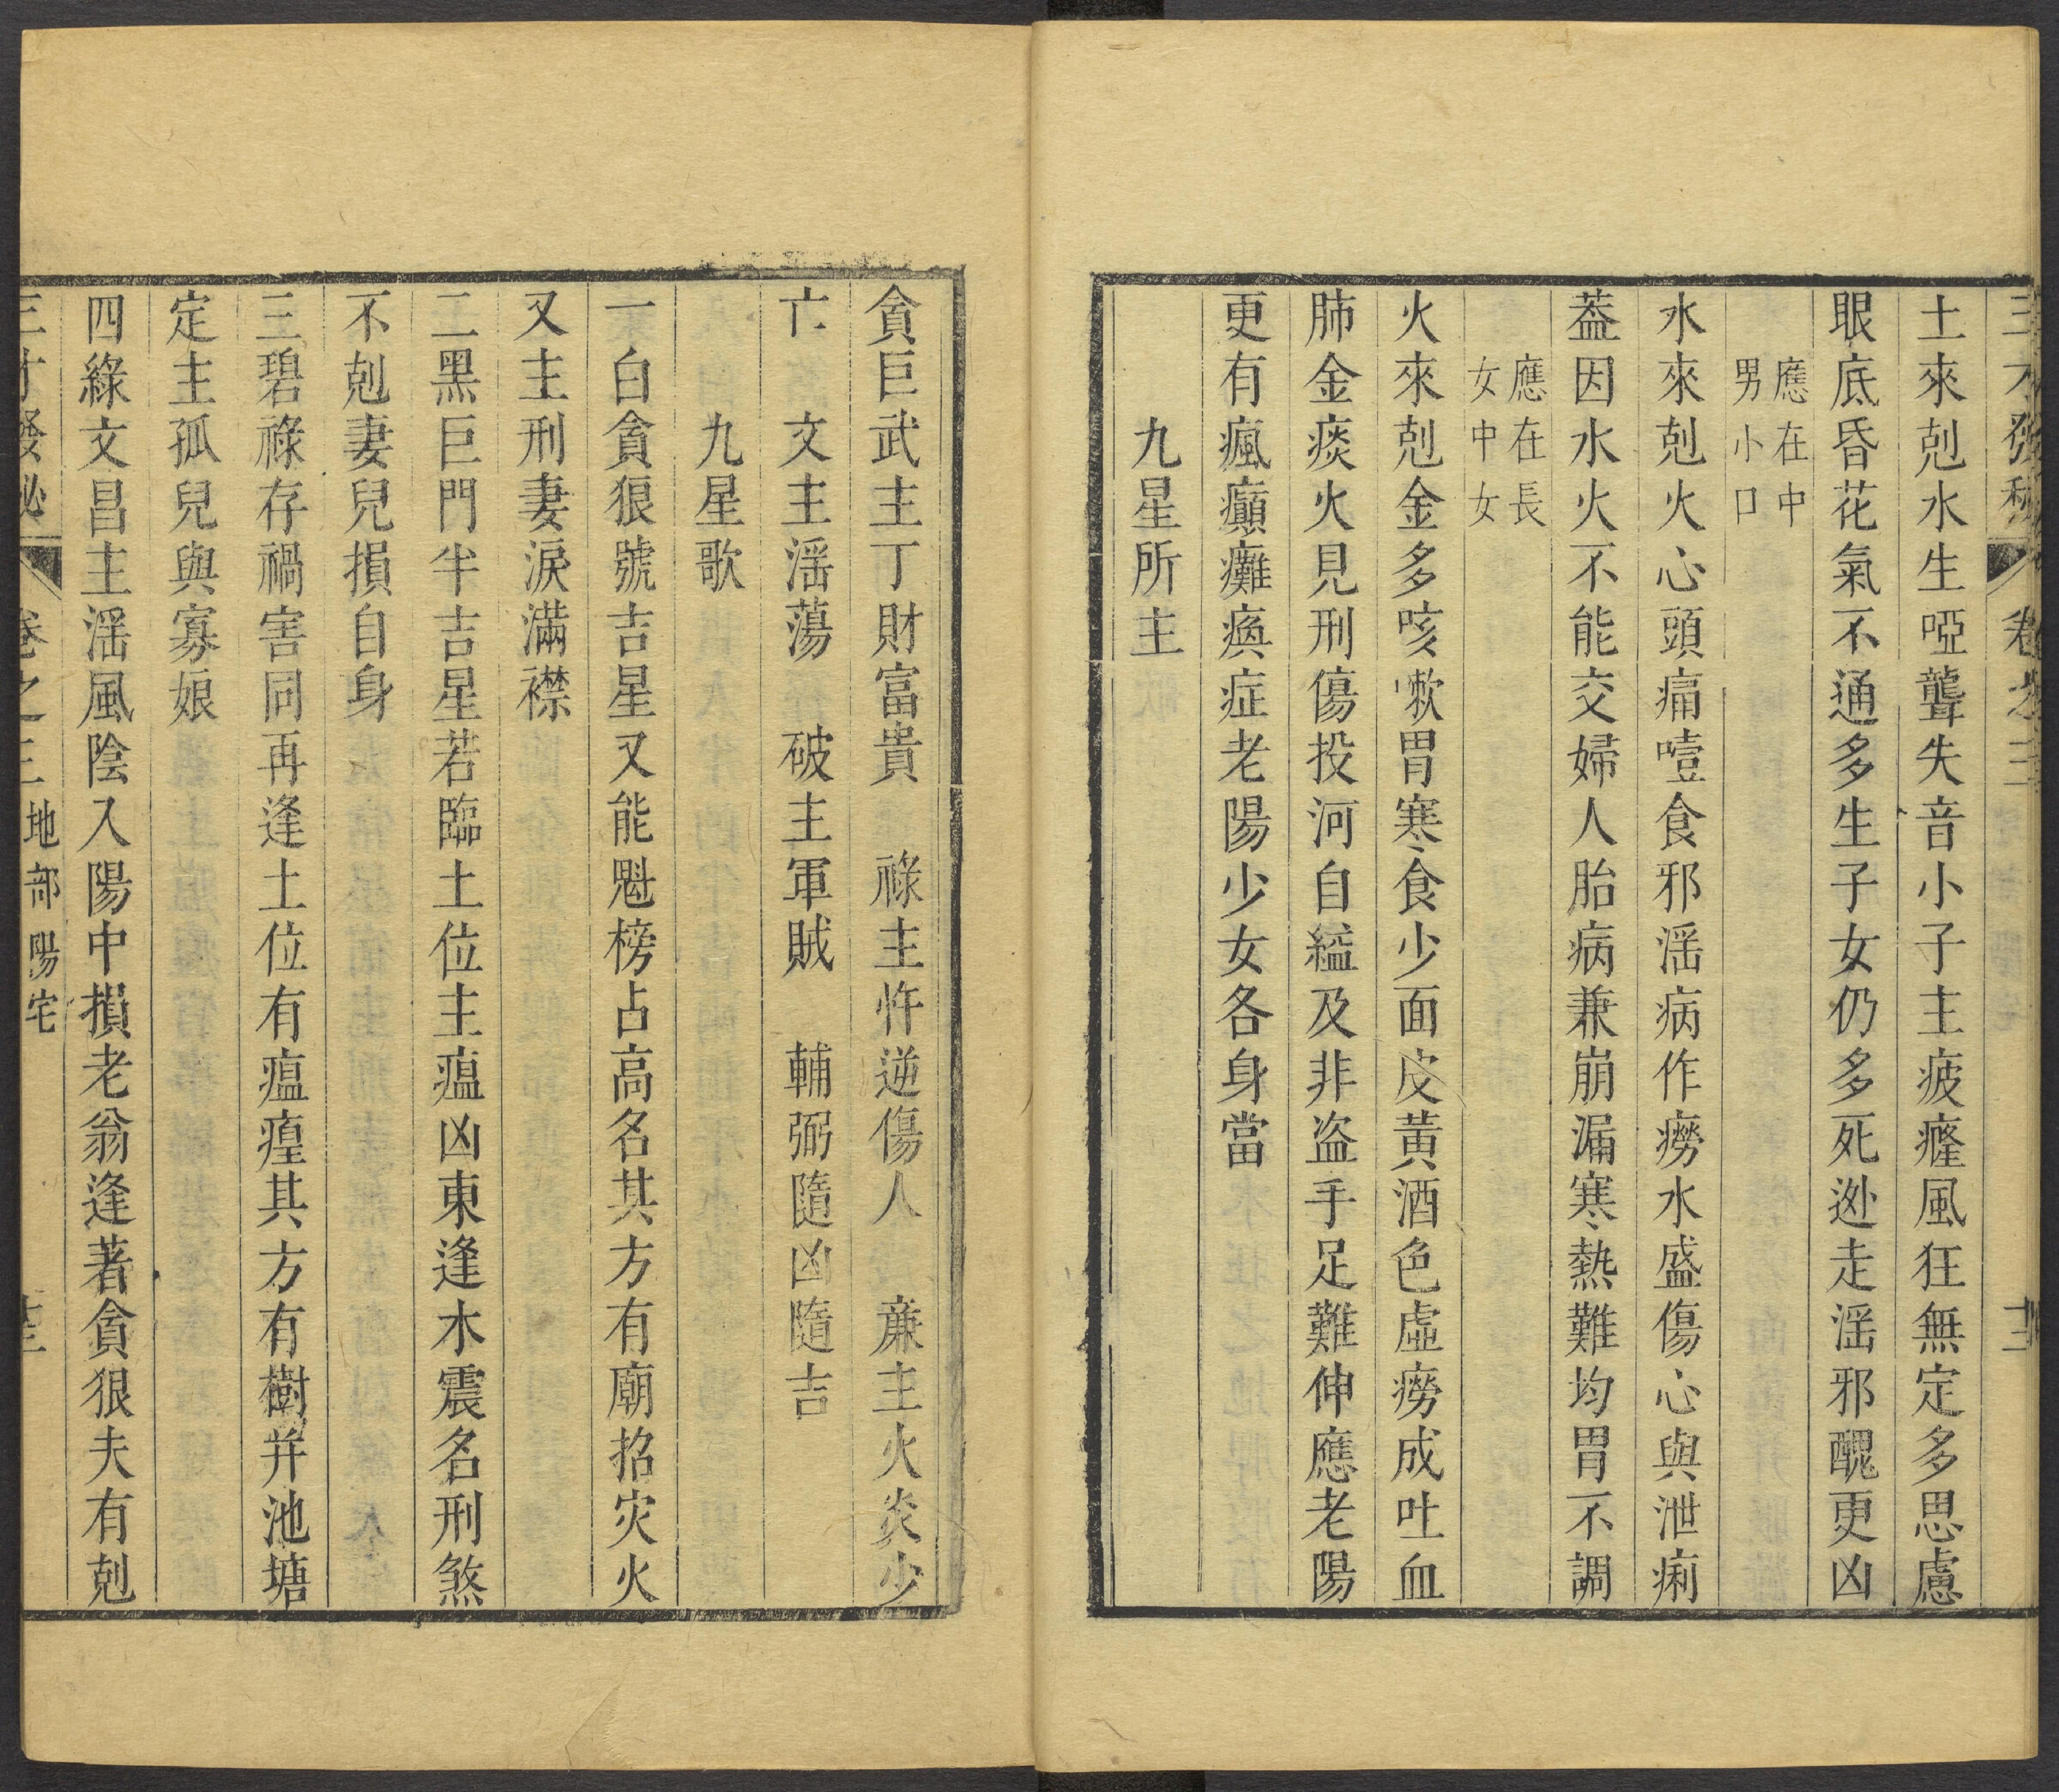 三才發秘 卷之三
土來剋水生啞聾失音小子主疲癃風狂無定多思慮
眼底昏花氣不通多生子女仍多死逃走淫邪醜更凶
應在中
男小口
水來剋火心頭痛噎食邪淫病作癆水盛傷心與泄痢
蓋因水火不能交婦人胎病兼崩漏寒熱難均胃不調
應在長
女中女
火來剋金多咳嗽胃寒食少面皮黃酒色虛癆成吐血
肺金痰火見刑傷投河自縊及非盜手足難伸應老陽
更有瘋癲癱瘓症老陽少女各身當
九星所主
貪巨武主丁財富貴 祿主忤逆傷人 廉主火炎少
亡 文主淫蕩 破主軍賊 輔弼隨凶隨吉
九星歌
一白貪狼號吉星又能魁榜占高名其方有廟招灾火
又主刑妻淚滿襟
二黑巨門半吉星若臨土位主瘟凶東逢木震名刑煞
不剋妻兒損自身
三碧祿存禍害同再逢土位有瘟瘴其方有樹并池塘
定主孤兒與寡娘
四綠文昌主淫風陰入陽中損老翁逢著貪狼夫有剋
三才發秘 卷之三 地部 陽宅